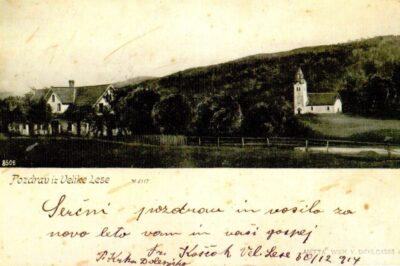 8501
Pozdrav iz Velike Lese
Serčni pozdrav in vošilo za
novo leto vam in vaši gospej
Vel. Lese 30/12 914
P. Krka Dolenjsko